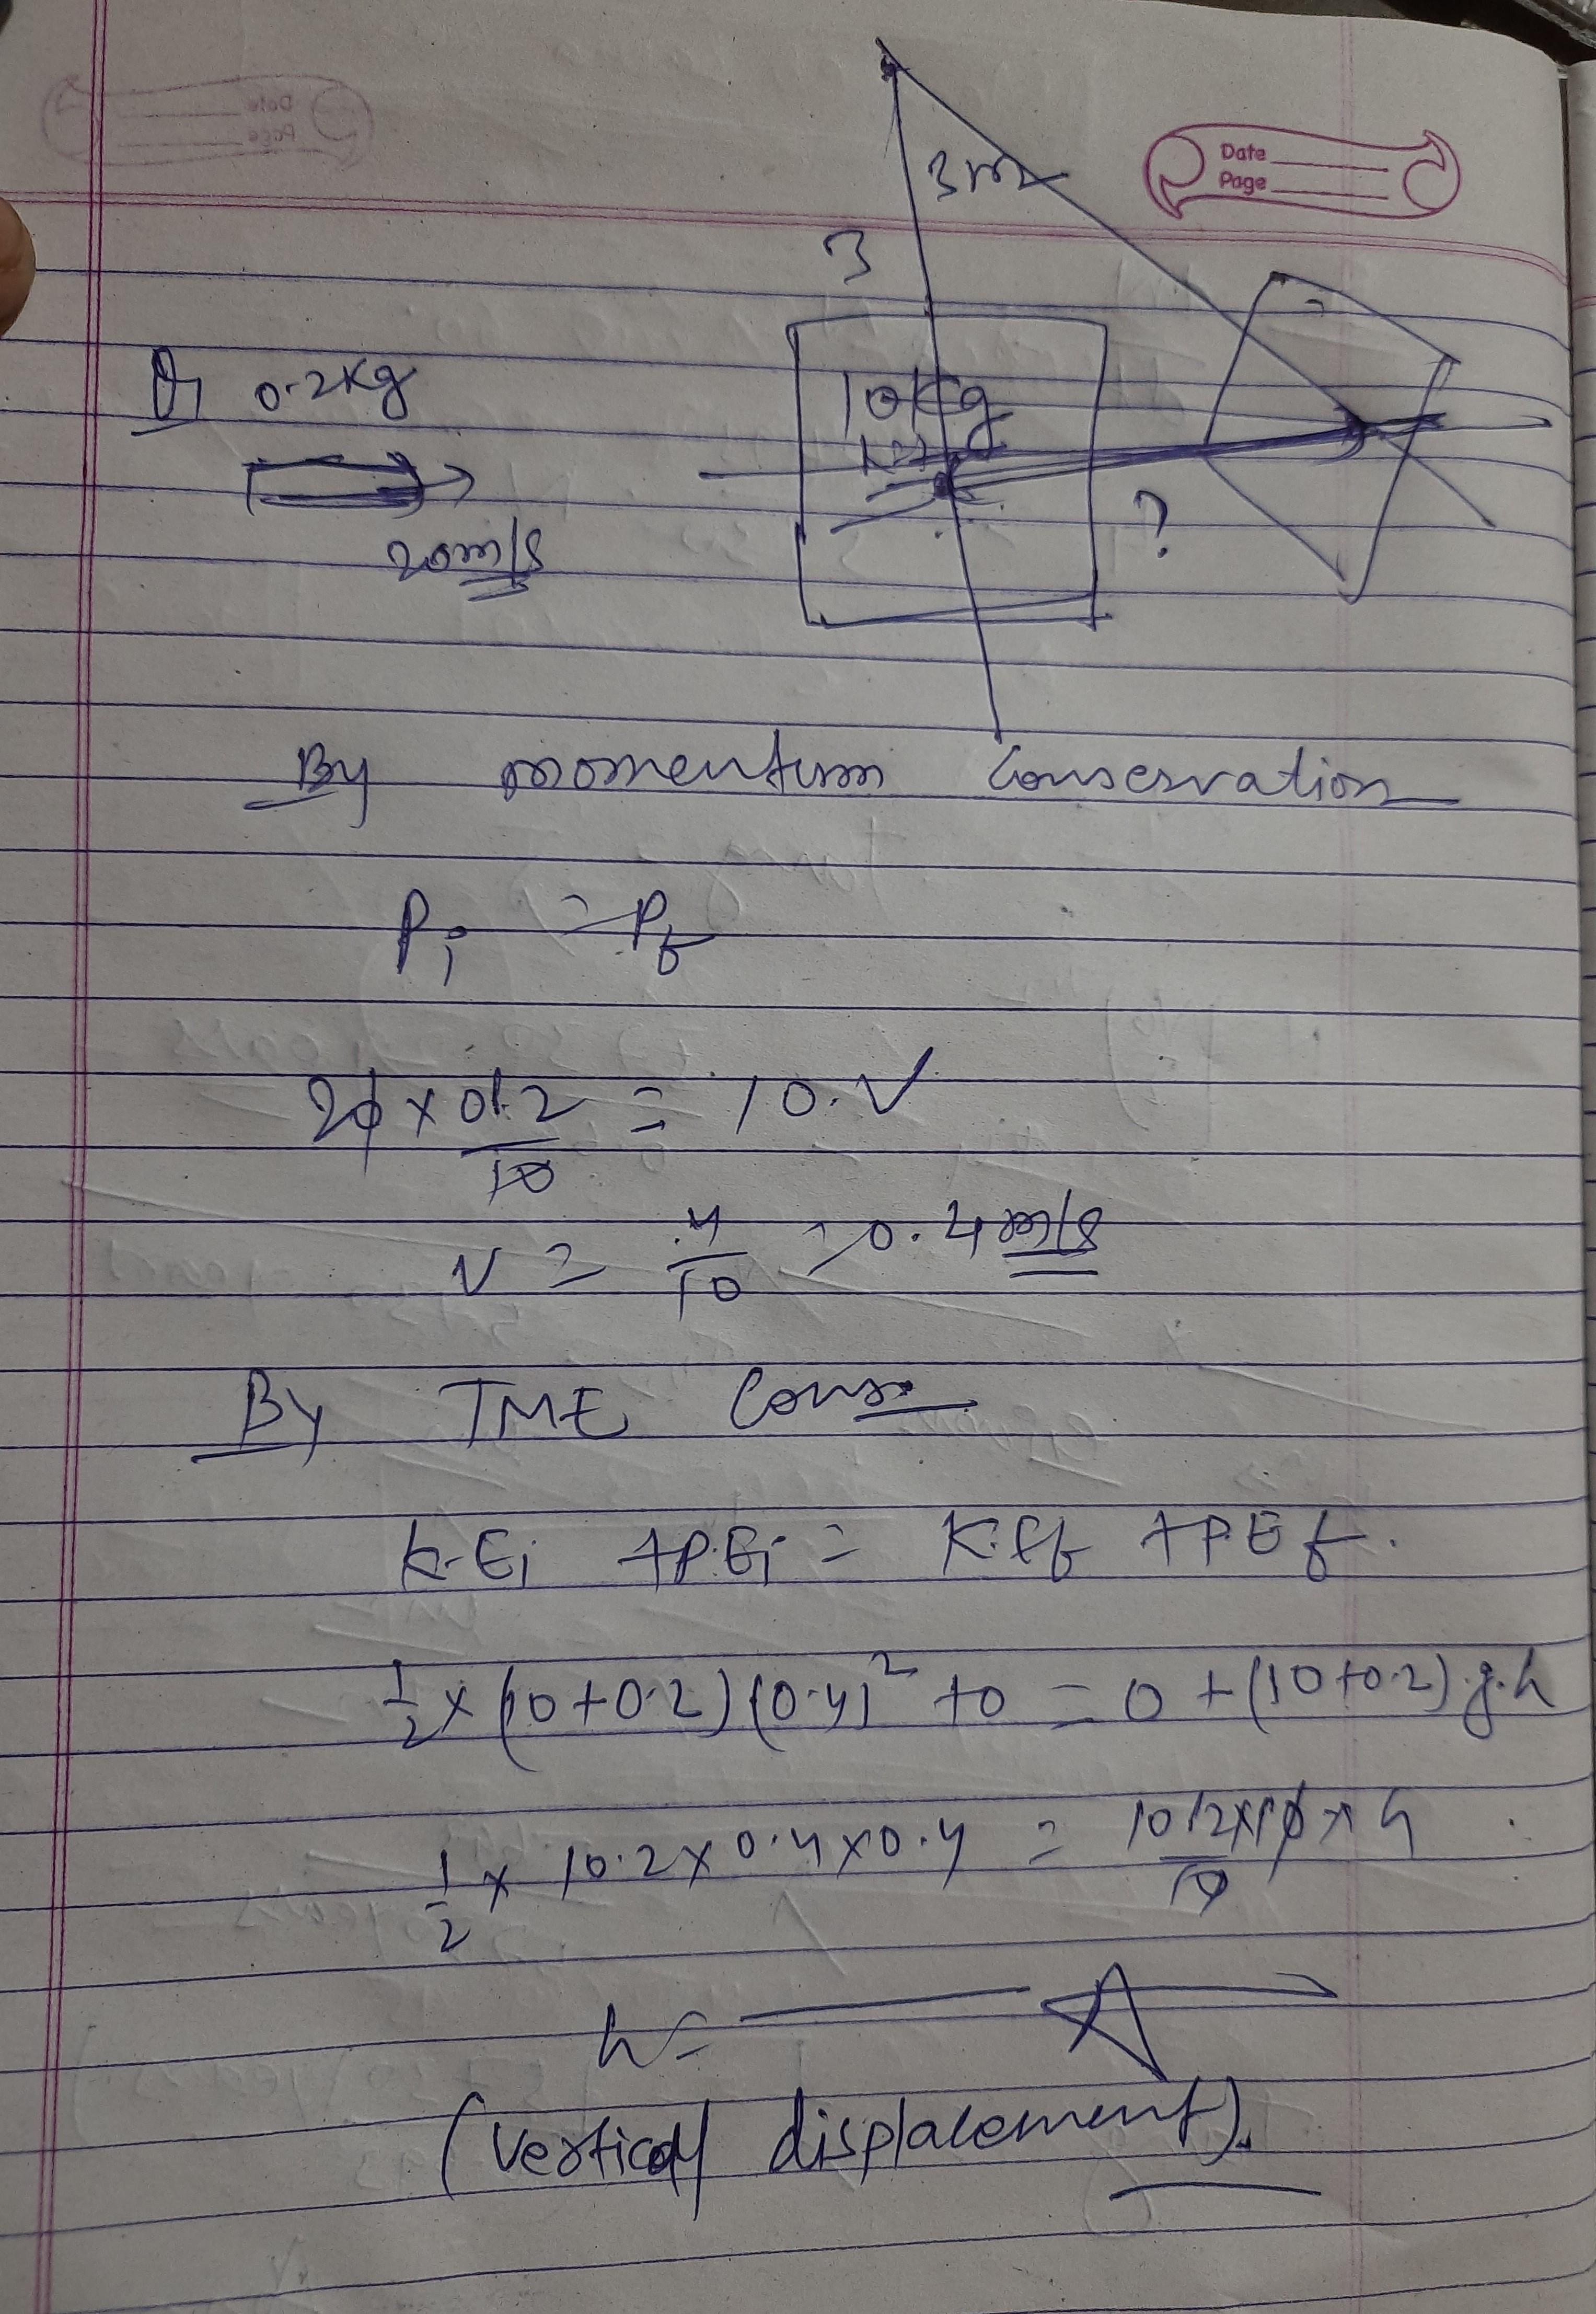 Date
Page
3m
3
Q 0.2Kg
10Kg
20m/s
?
By momentum Conservation
Pi = Pf
20 x 01.2 = 10.V
10
v = 4 = 0.4 m/s
10
By TME Cons.
K.Ei + P.Ei = K.Ef + P.Ef.
1/2 x (10+0.2) (0.4)² + 0 = 0 + (10+0.2).g.h
1/2 x 10.2 x 0.4 x 0.4 = 1012x10 x h
10
h =
(Vertical displacement).